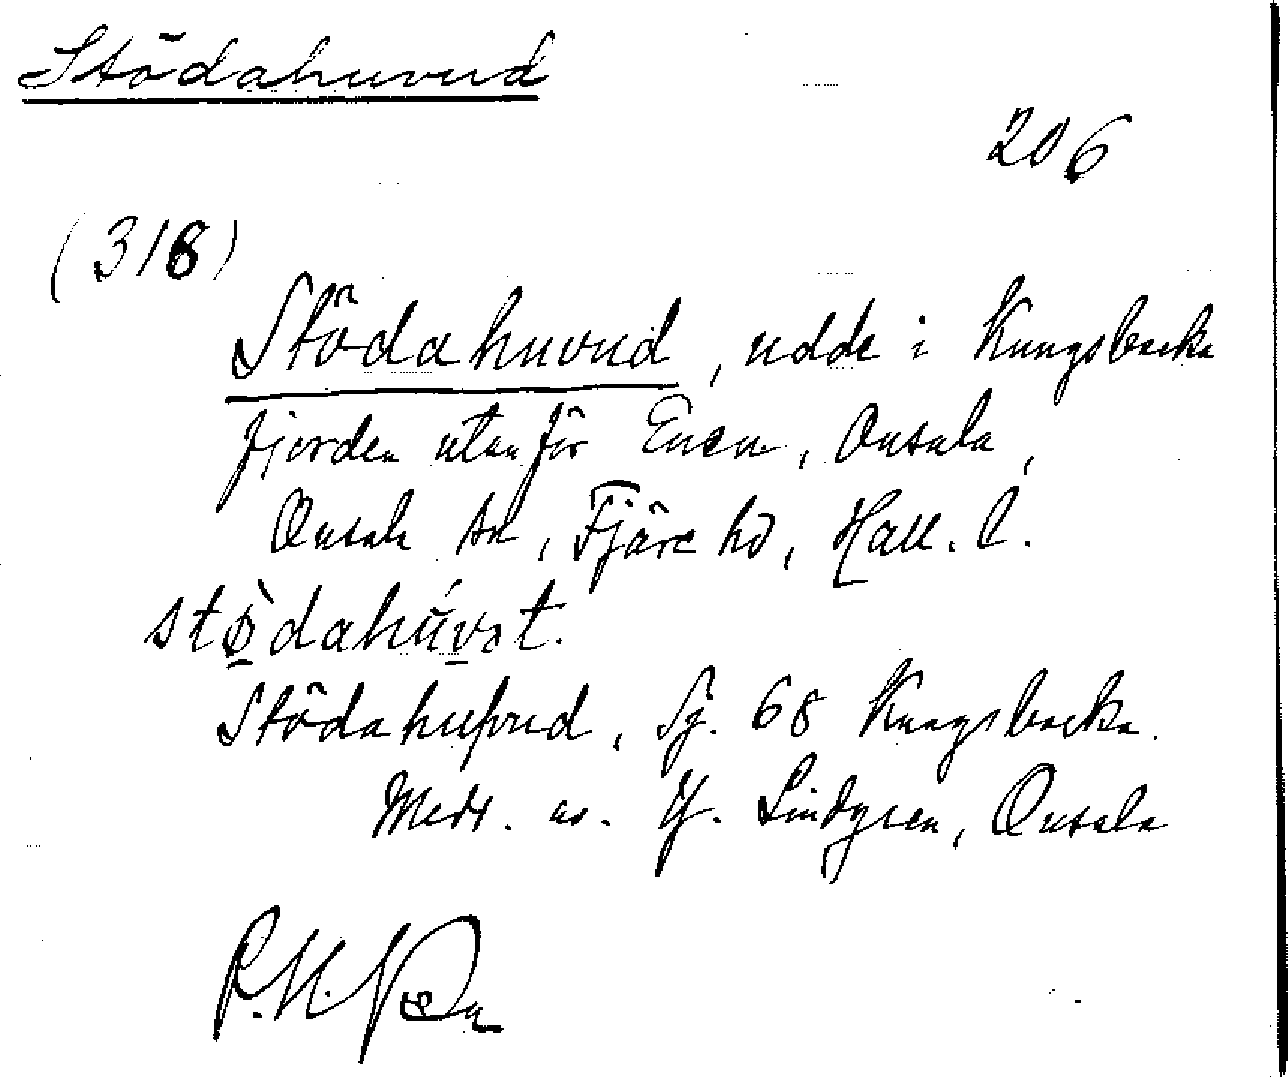 Stödahuvud
206
(318)
Stödahuvud, udde i Kungsbacka
fjorden utanför Enen, Onsala,
Onsala sn, Fjäre hd, Hall. l.
stø̀dahúvət.
Stödahufvud, Sj. 68 Kungsbacka.
Medd. av Y. Lindgren, Onsala